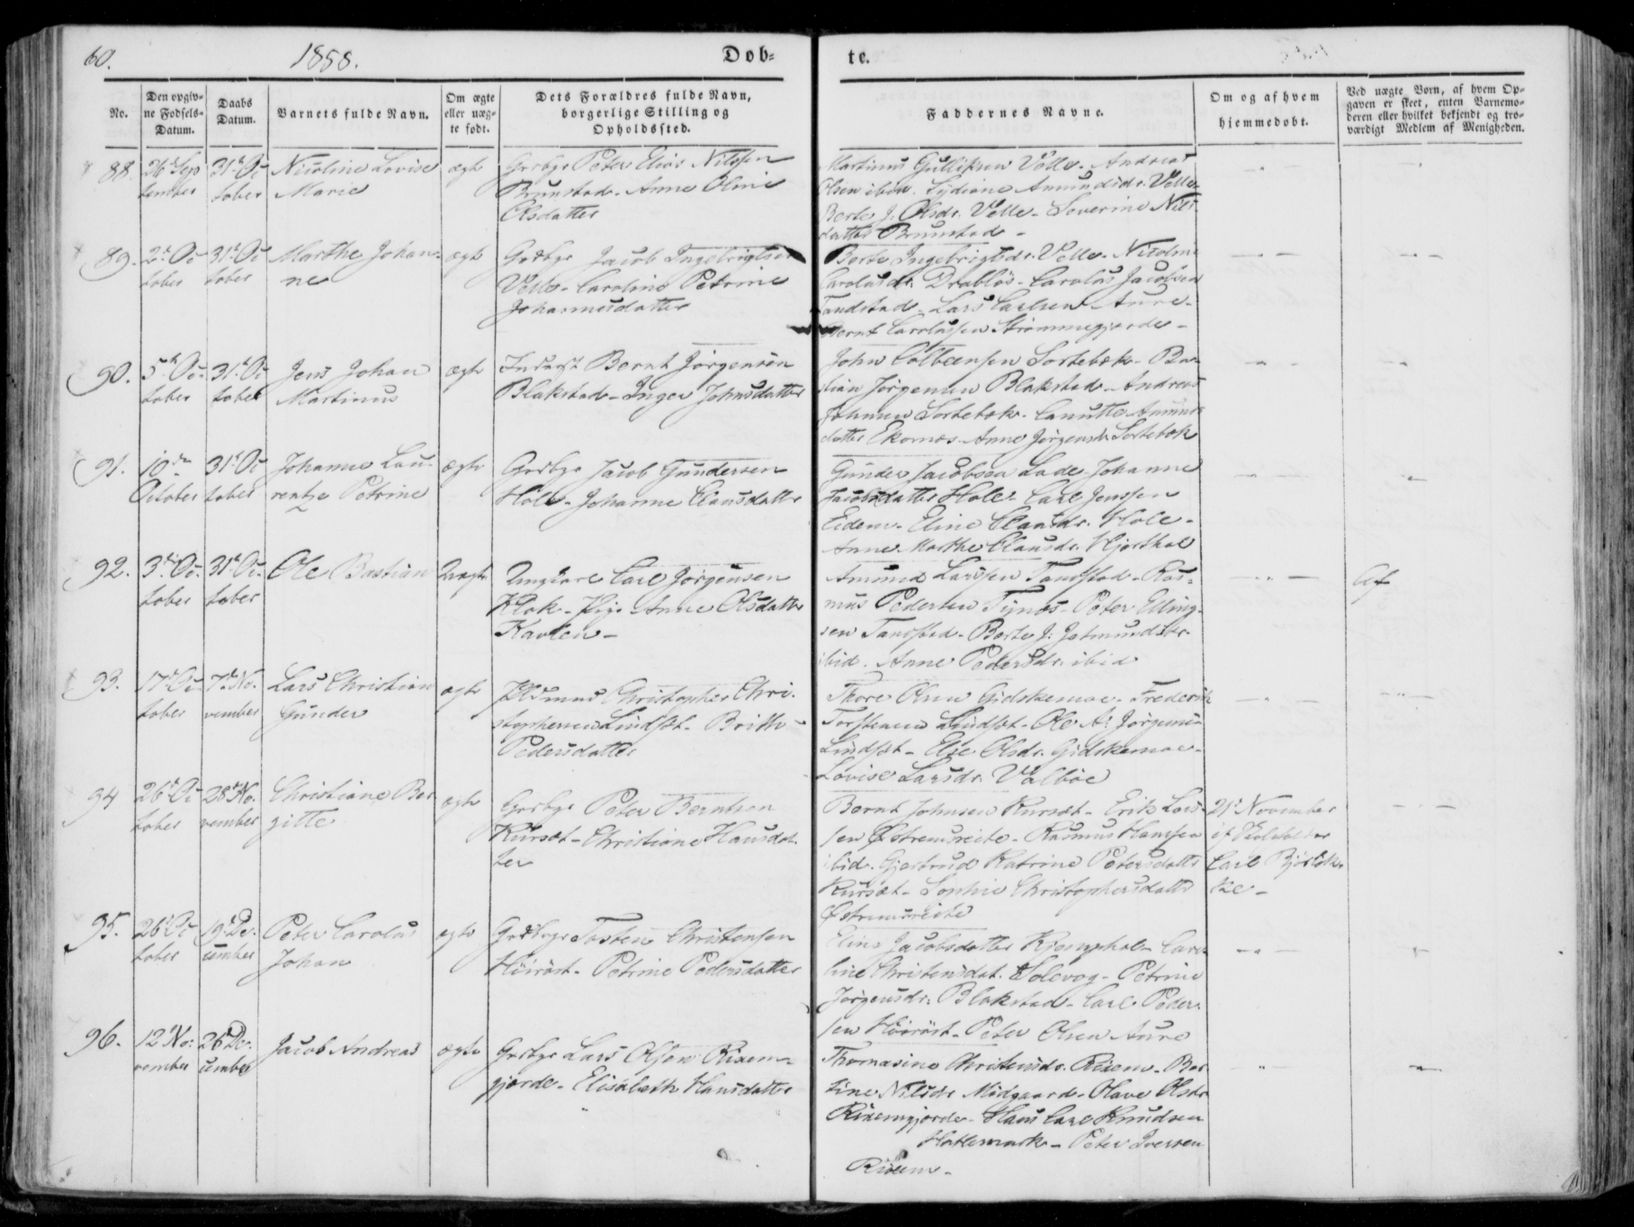 60.
1858.
Døb-
te.
No.
Den opgiv-
ne Fødsels-
Datum.
Daabs
Datum.
Barnets fulde Navn.
Om ægte
eller uæg-
te født.
Dets Forældres fulde Navn,
borgerlige Stilling og
Opholdssted.
Faddernes Navne.
Om og af hvem
hjemmedøbt.
Ved uægte Børn, af hvem Op-
gaven er skeet, enten Barnemo-
deren eller hvilket bekjendt og tro-
værdigt Medlem af Menigheden.
88.
26de Sep
tember
31te Oc
tober
Nicoline Lovise
Marie
ægte
Grdbgr Peter Elias Nilssen
Brunstad - Anne Oline
Olsdatter
Martinus Gulliksen Velle - Andreas
Olsen ibid. Lydiane Amundsdr. Velle
Berte J. Olsdr. Velle - Severine Nils
datter Brunstad -
89.
2de Oc
tober
31te Oc
tober
Marthe Johan-
ne
ægte
Grdbgr Jacob Ingebrigtsen
Velle - Caroline Petrine
Johannesdatter
Berte Ingebrigtsdr. Velle - Nicoline
Carolusdr. Drabløs - Carolus Jacobsen
Tandstad - Lars Carlsen Aure -
Bernt Carolussen Strømmegjerde -
90.
5te Oc-
tober
31te Oc
tober
Jens Johan
Martinus
ægte
Inderst Bernt Jørgensen
Blakstad - Inger Johnsdatter
John Colbeensen Sortebæk - Ba
stian Jørgensen Blakstad - Andreas
Johnsen Sortebæk - Canutte Amunds
datter Ekornæs - Anne Jørgensdr. Sortebæk
91.
10de
October
31te Oc
tober
Johanne Lau-
rentze Petrine
ægte
Grdbgr Jacob Gundersen
Hole - Johanne Clausdatter
Gunder Jacobsen Lade - Johanne
Jacobsdatter Hole - Carl Jenssen
Eidem - Eline Clausdr. Hole -
Anne Marthe Clausdr. Hjorthol
92.
3de Oc-
tober
31te Oc-
tober
Ole Bastian
Uægte
Ungkarl Carl Jørgensen
Klok - Pige Anne Olsdatter
Havlen -
Amund Larssen Tandstad - Ras-
mus Pedersen Tynes - Peter Elling-
sen Tandstad - Berte J. Jetmundsdr.
ibid. Anne Pedersdr. ibid
Af
93.
17de Oc
tober
7de No-
vember
Lars Christian
Gunder
ægte
Pldsmand Christopher Chri-
stophersen Lindset - Brith -
Pedersdatter
Thore Olsen Gidskemoe - Frederik
Torstensen Lindset - Ole A. Jørgensen
Lindset - Else Olsdr. Gidskemoe -
Lovise Larsdr. Valbøe
94
26de Oc
tober
28de No-
vember
Christiane Ber
gitte
ægte
Grdbgr Peter Berntsen
Kurset - Christiane Hansdat-
ter
Bernt Johnsen Kurset - Erik Lars-
sen Østremsreite - Rasmus Hansen
ibid. Gjertrud Katrine Petersdatter
Kurset - Sophie Christophersdatter
Østremsreite
21de November
af Skoleholder
Carl
95.
26de Oc
tober
19de De-
cember
Peter Carolus
Johan
ægte
Grdbgr Tosten Christensen
Høiröst - Petrine Pedersdatter
Eline Jacobsdatter Kjemphol - Caro
line Christensdat. Solevog - Petrine
Jørgensdr. Blakstad - Carl Peder-
sen Høiröst - Peter Olsen Aure
96.
12 No-
vember
26de De-
cember
Jacob Andreas
ægte
Grdbgr Lars Olsen Risem-
gjerde - Elisabeth Hansdatter
Thomasine Christensdr. Risem - Ber
tine Nilsdr Midgaard - Olave Olsdr
Risemgjerde - Hans Carl Knudsen
Hatlemark - Peter Iversen
Risem -